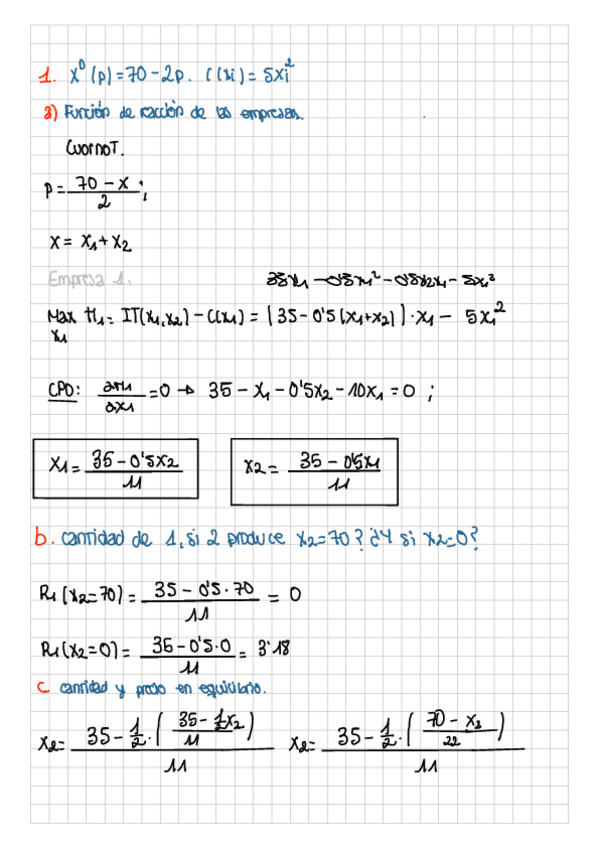 1. x⁰(p) = 70 - 2p. C(xi) = 5xi²
a) Función de reacción de las empresas.
CuornoT.
p = (70 - x)/2 ;
x = x₁ + x₂
Empresa 1.
35x₁ - 0'5x₁² - 0'5x₂x₁ - 5x₁²
Max x₁ π₁ = IT(x₁,x₂) - C(x₁) = [35 - 0'5(x₁+x₂)]·x₁ - 5x₁²
CPO: ∂π₁/∂x₁ = 0 → 35 - x₁ - 0'5x₂ - 10x₁ = 0 ;
x₁ = (35 - 0'5x₂)/11
x₂ = (35 - 0'5x₁)/11
b. cantidad de 1, si 2 produce x₂=70? ¿Y si x₂=0?
R₁(x₂=70) = (35 - 0'5·70)/11 = 0
R₁(x₂=0) = (35 - 0'5·0)/11 = 3'18
c cantidad y precio en equilibrio.
x₂ = (35 - 1/2·((35 - 1/2x₂)/11))/11 x₂ = (35 - 1/2·((70 - x₂)/22))/11